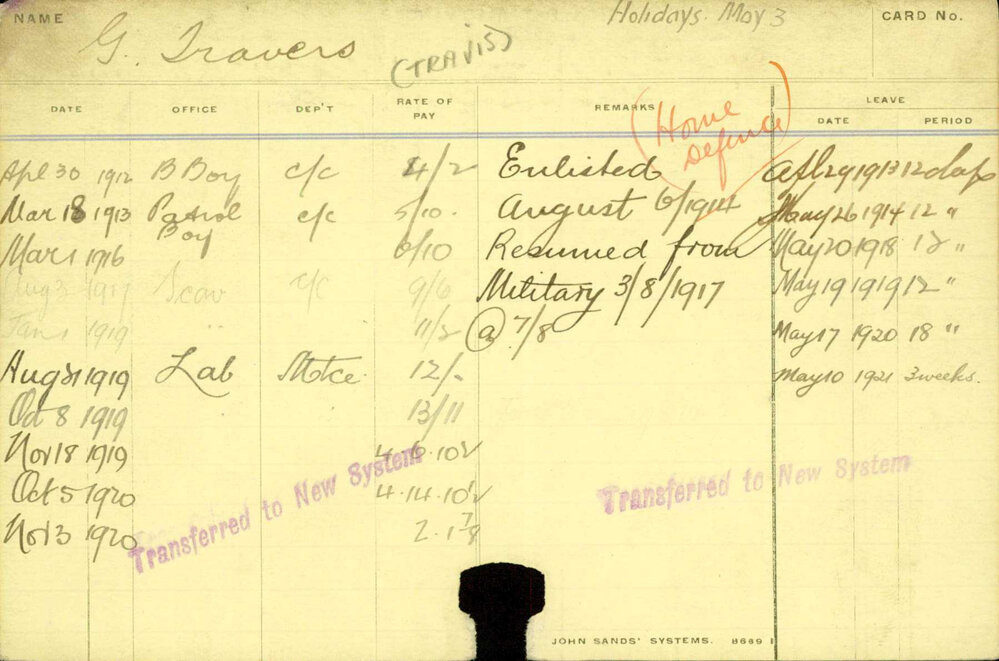 NAME G. Travers (TRAVIS) Holidays. May 3 CARD No.
DATE OFFICE DEP'T RATE OF PAY REMARKS LEAVE DATE PERIOD
(Home Defence)
Apl 30 1912 B Boy c/c 4/2 Enlisted Apl 29 1913 12 days
Mar 18 1913 Patrol Boy c/c 5/10. August 6/1914 May 26 1914 12 "
Mar 1 1916 6/10 Resumed from May 20 1918 12 "
Aug 3 1917 Scav c/c 9/6 Military 3/8/1917 May 19 1919 12 "
Jan 1 1919 " 11/2 @ 7/8 May 17 1920 18 "
Aug 21 1919 Lab Mtce. 12/- May 10 1921 3 weeks.
Oct 8 1919 13/11
Nov 18 1919
Oct 5 1920
Nov 3 1920 2.1 7/8
Transferred to New System
Transferred to New System
JOHN SANDS' SYSTEMS. 8669